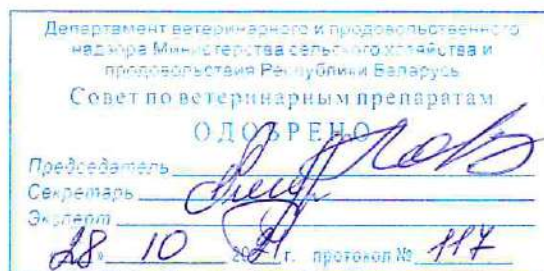 Департамент ветеринарного и продовольственного
надзора Министерства сельского хозяйства и
продовольствия Республики Беларусь
Совет по ветеринарным препаратам
ОДОБРЕНО
Председатель
Секретарь
Эксперт
28 10 2021 г. протокол № 117